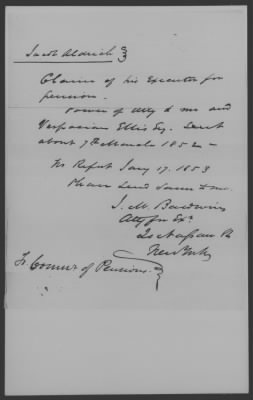 Jacob Aldrich
Claim of his Executor for
pension.
Power of Atty to me and
Vespasian Ellis Esq. Sent
about 7th March 1852 -
No Report Jany 17. 1853
Please send same to me.
J. M. Baldwin
Atty for Exr
Nassau St
New York
To Commr of Pensions.